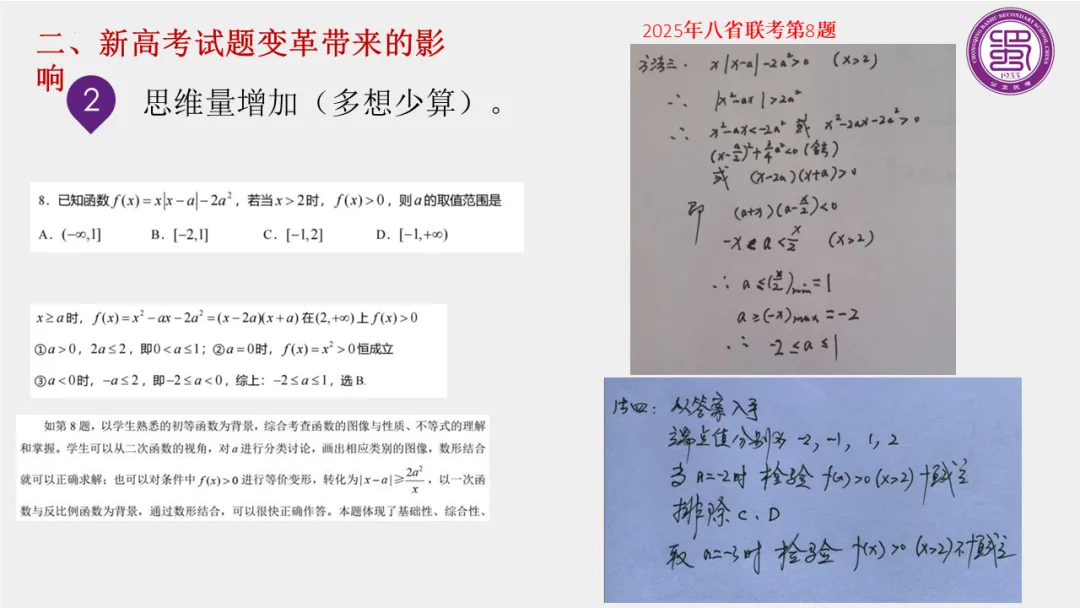 二、新高考试题变革带来的影
响
2
思维量增加（多想少算）。
8．已知函数 f(x)=x|x−a|−2a²，若当x>2时，f(x)>0，则a的取值范围是
A．(−∞,1] B．[−2,1] C．[−1,2] D．[−1,+∞)
x≥a时，f(x)=x²−ax−2a²=(x−2a)(x+a)在(2,+∞)上f(x)>0
①a>0，2a≤2，即0<a≤1；②a=0时，f(x)=x²>0恒成立
③a<0时，−a≤2，即−2≤a<0，综上：−2≤a≤1，选 B.
如第 8 题，以学生熟悉的初等函数为背景，综合考查函数的图像与性质、不等式的理解
和掌握。学生可以从二次函数的视角，对a进行分类讨论，画出相应类别的图像，数形结合
就可以正确求解；也可以对条件中 f(x)>0 进行等价变形，转化为|x−a|≥2a²/x，以一次函
数与反比例函数为背景，通过数形结合，可以很快正确作答。本题体现了基础性、综合性、
2025年八省联考第8题
方法三． x|x−a|−2a²>0 (x>2)
∴ |x²−ax|>2a²
∴ x²−ax<−2a² 或 x²−2ax−2a²>0
(x−a/2)²+3/4a²<0 (舍去)
或 (x−2a)(x+a)>0
即 (a+x)(a−x/2)<0
−x<a<x/2 (x>2)
∴ a≤(x/2)min=1
a≥(−x)max=−2
∴ −2≤a≤1
法四：从答案入手
端点值分别为 −2，−1，1，2
当 a=−2时 检验 f(x)>0 (x>2) 恒成立
排除 C、D
取 a=−3时 检验 f(x)>0 (x>2)不恒成立
CHONGQING BASHU SECONDARY SCHOOL
1933